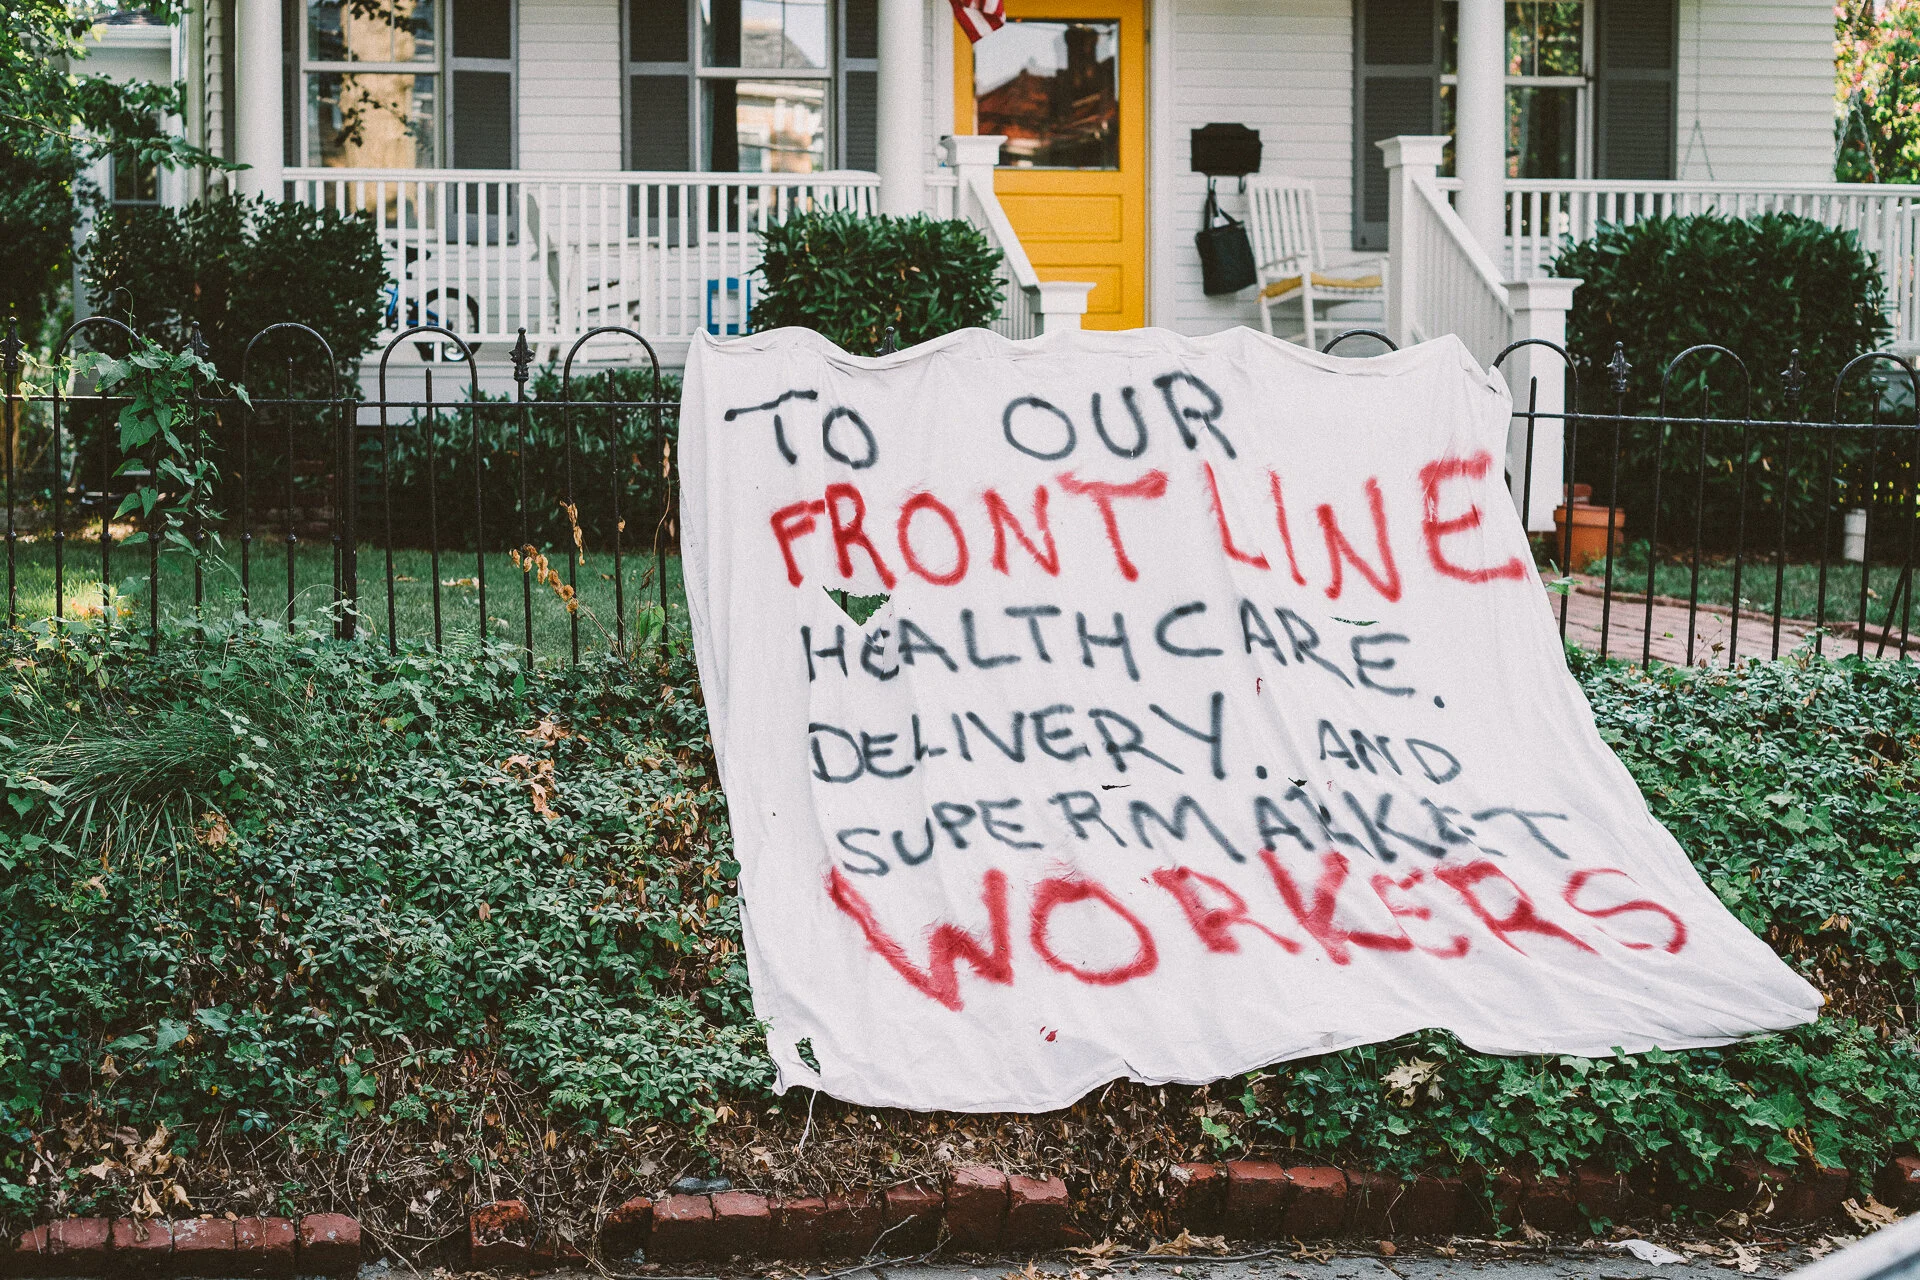 TO OUR
FRONT LINE
HEALTHCARE.
DELIVERY. AND
SUPERMARKET
WORKERS